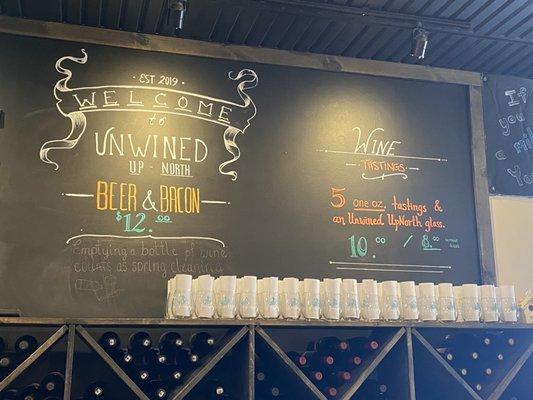 EST 2019
WELCOME
to
UNWINED
UP - NORTH
BEER & BACON
$12.00
Emptying a bottle of wine
counts as spring cleaning
WINE
TASTINGS
5 one oz. tastings &
an Unwined UpNorth glass.
10.00 / 8.00 without glass
If
you
a m
Yo